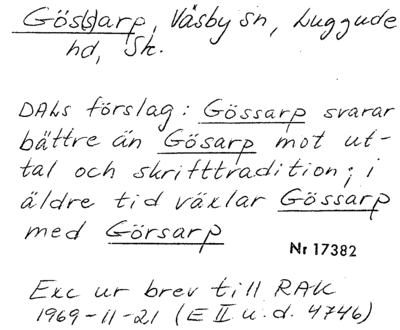 Gös(s)arp, Väsby sn, Luggude
hd, Sk.
DALs förslag: Gössarp svarar
bättre än Gösarp mot ut-
tal och skrifttradition; i
äldre tid växlar Gössarp
med Görsarp
Nr 17382
Exc ur brev till RAK
1969-11-21 (E II u.d. 4746)